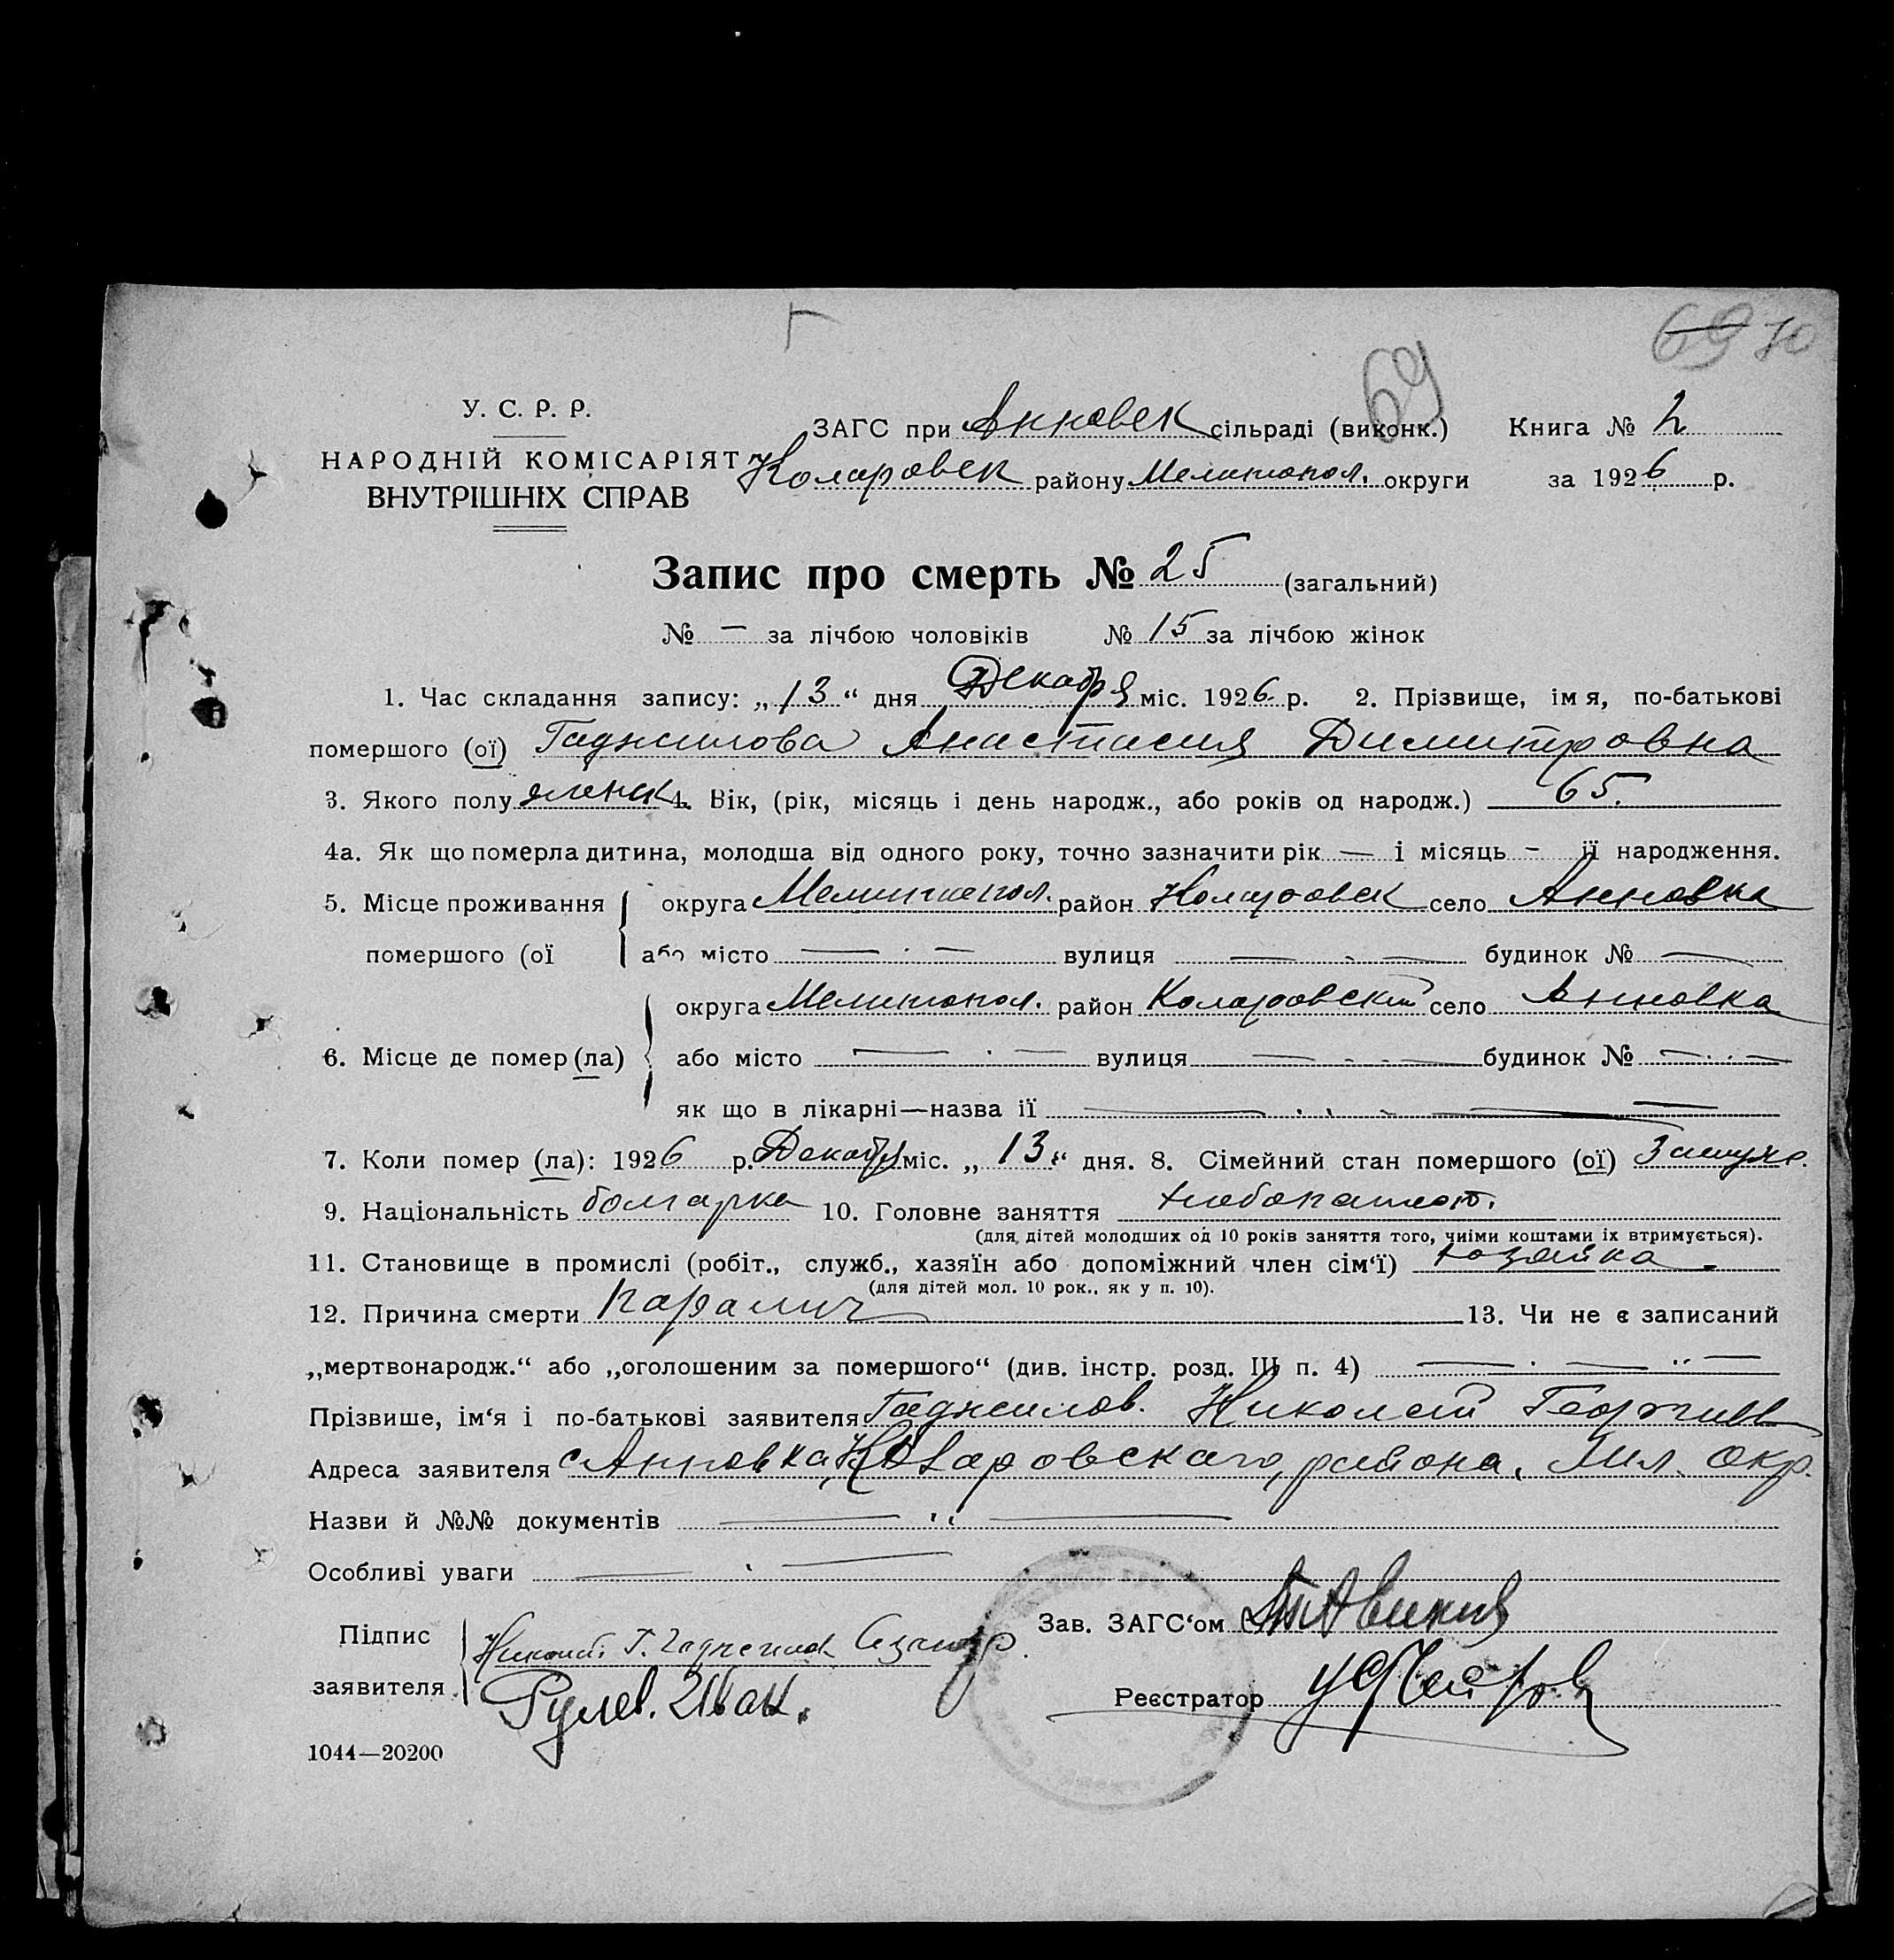 69 70
69
У. С. Р. Р.
НАРОДНІЙ КОМІСАРІЯТ
ВНУТРІШНІХ СПРАВ
ЗАГС при Анновск сільраді (виконк.) Книга № 2
Коларовск району Мелитопол. округи за 1926 р.
Запис про смерть № 25 (загальний)
№ — за лічбою чоловіків № 15 за лічбою жінок
1. Час складання запису: „13“ дня Декабря міс. 1926 р. 2. Прізвище, імя, по-батькові
помершого (ої) Гаджилова Анастасия Димитровна
3. Якого полу женск 4. Вік, (рік, місяць і день народж., або років од народж.) 65.
4а. Як що померла дитина, молодша від одного року, точно зазначити рік — і місяць - її народження.
5. Місце проживання округа Мелитопол. район Коларовск село Анновка
помершого (ої або місто — . — вулиця — . — будинок № —
округа Мелитопол. район Коларовский село Анновка
6. Місце де помер (ла) або місто — . — вулиця — - - — будинок № — . . —
як що в лікарні—назва її
7. Коли помер (ла): 1926 р. Декабря міс. „13“ дня. 8. Сімейний стан помершого (ої) Замуж.
9. Національність болгарка 10. Головне заняття хлебопашест.
(для дітей молодших од 10 років заняття того, чиїми коштами їх втримується).
11. Становище в промислі (робіт., служб., хазяїн або допоміжний член сім‘ї) хозяйка
(для дітей мол. 10 рок., як у п. 10).
12. Причина смерти паралич 13. Чи не є записаний
„мертвонародж.“ або „оголошеним за помершого“ (див. інстр. розд. III п. 4)
Прізвише, ім‘я і по-батькові заявителя Гаджилов. Николай Георгиев
Адреса заявителя с Анновка, Коларовскаго, района, Мел. Окр.
Назви й №№ документів
Особливі уваги
Підпис Николай Г. Гаджилов
заявителя Рулев. Иван.
Зав. ЗАГС‘ом
Реєстратор
1044—20200